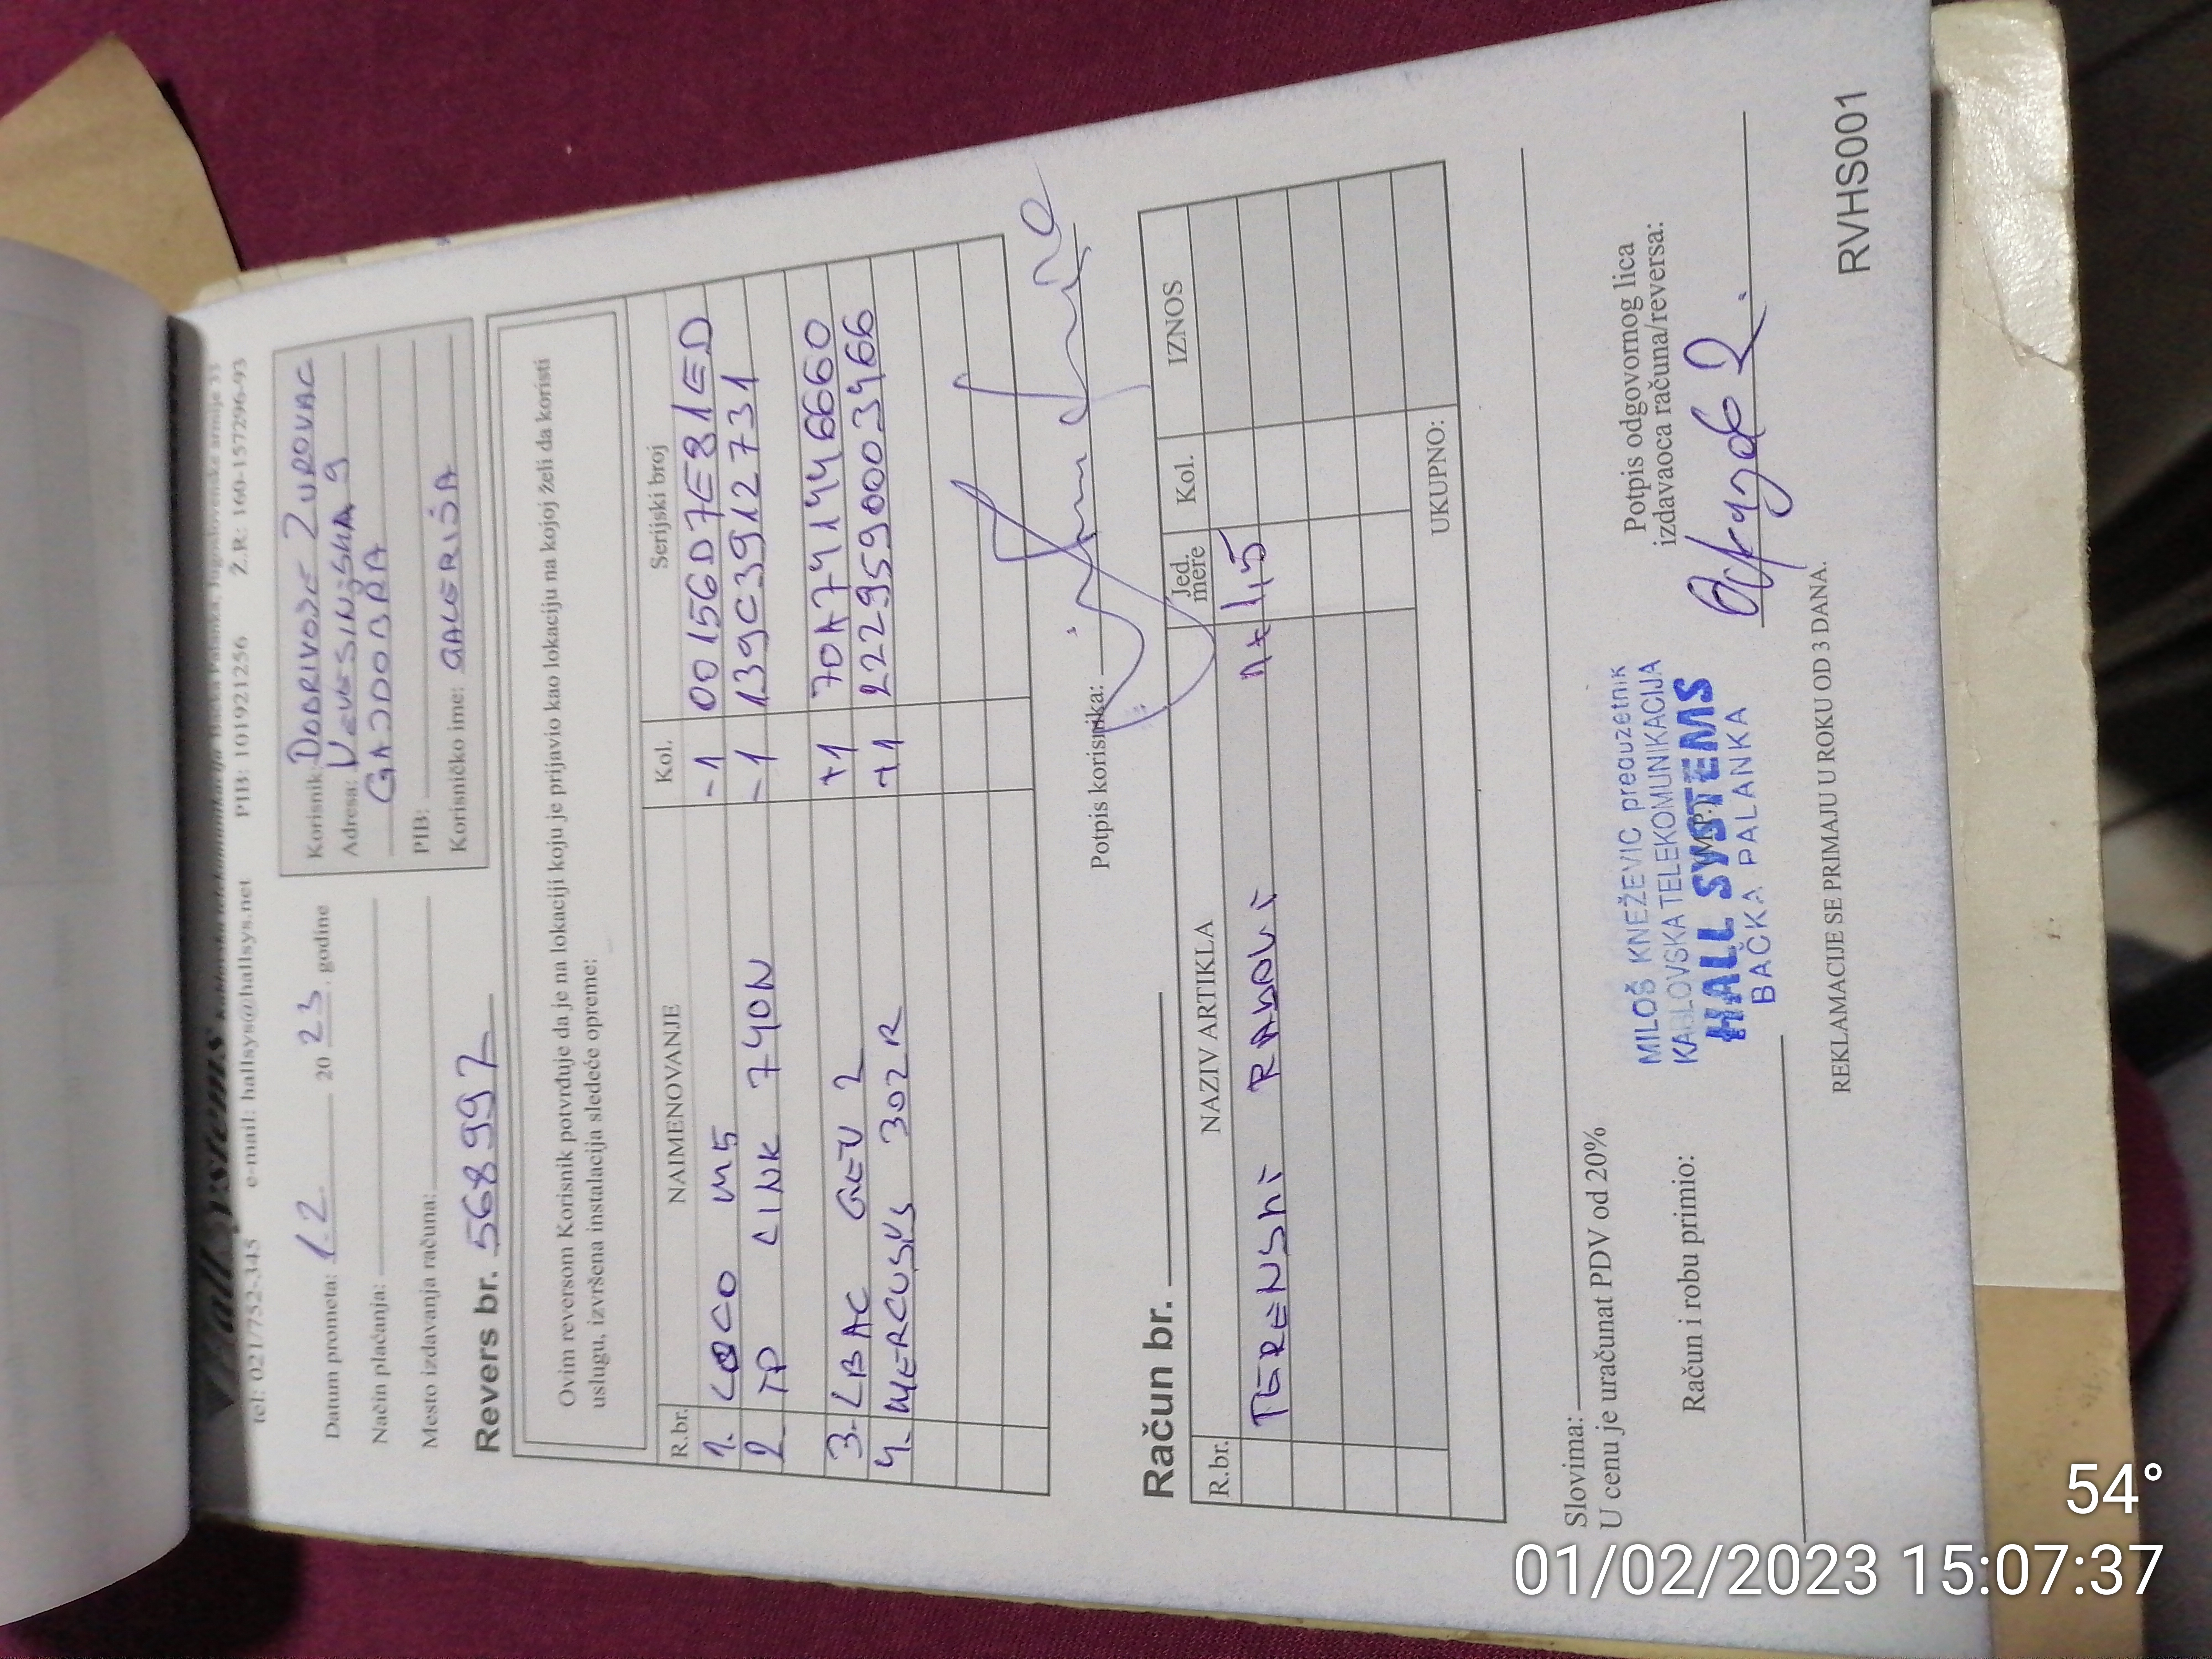 Hall Systems kablovska telekomunikacija Bačka Palanka, Jugoslovenske armije 33
tel: 021/752-345 e-mail: hallsys@hallsys.net PIB: 101921256 Ž.R.: 160-157296-93
Datum prometa: 1.2. 2023. godine
Način plaćanja:
Mesto izdavanja računa:
Korisnik: DOBRIVOJE ZUROVAC
Adresa: NEVESINJSKA 9
GAJDOBRA
PIB:
Korisničko ime:
Revers br. 568997
Ovim reversom Korisnik potvrđuje da je na lokaciji koju je prijavio kao lokaciju na kojoj želi da koristi
uslugu, izvršena instalacija sledeće opreme:
R.br. NAIMENOVANJE Kol. Serijski broj
1. LOCO M5 -1 00156D7E81ED
2 TP LINK 740N -1 139C3912731
3. LBAC GEN 2 +1 70A741446660
4. MERCUSYS 302R +1 2229590003466
Potpis korisnika:
Račun br.
R.br. NAZIV ARTIKLA Jed. mere Kol. IZNOS
TERENSKI RADOVI
UKUPNO:
Slovima:
U cenu je uračunat PDV od 20%
Račun i robu primio:
MILOŠ KNEŽEVIĆ preduzetnik
KABLOVSKA TELEKOMUNIKACIJA
HALL SYSTEMS
BAČKA PALANKA
M.P.
Potpis odgovornog lica
izdavaoca računa/reversa:
REKLAMACIJE SE PRIMAJU U ROKU OD 3 DANA.
RVHS001
54°
01/02/2023 15:07:37